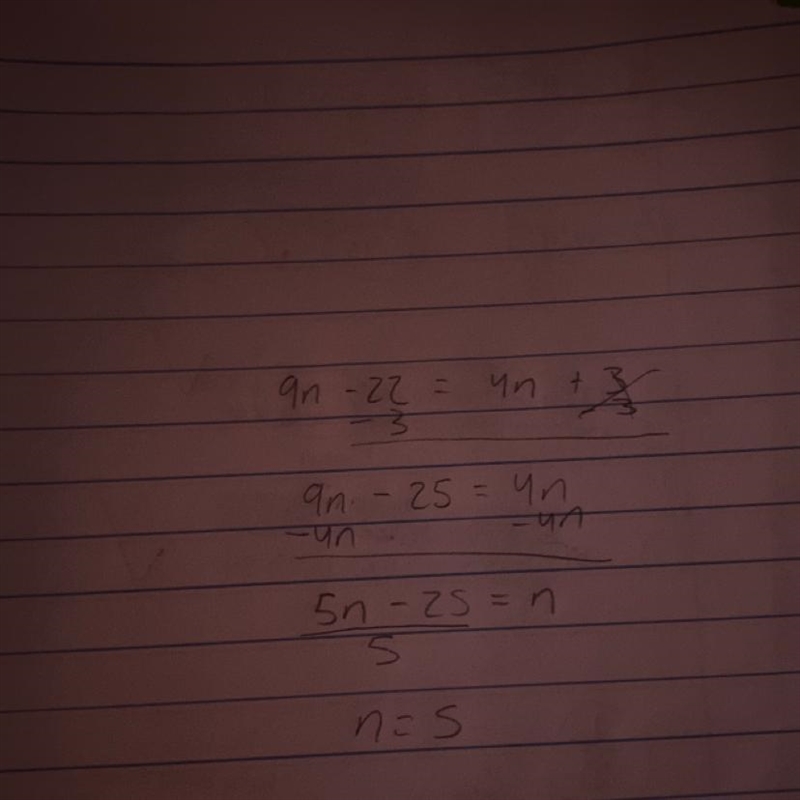 9n - 22 = 4n + 3
- 3 - 3
9n - 25 = 4n
-4n -4n
5n - 25 = n
5
n = 5